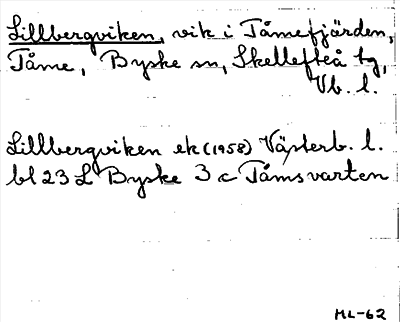 Lillbergviken, vik i Tåmefjärden,
Tåme, Byske sn, Skellefteå tg,
Vb. l.
Lillbergviken ek (1958) Västerb. l.
bl 23 L Byske 3 c Tåmsvarten
ML-62